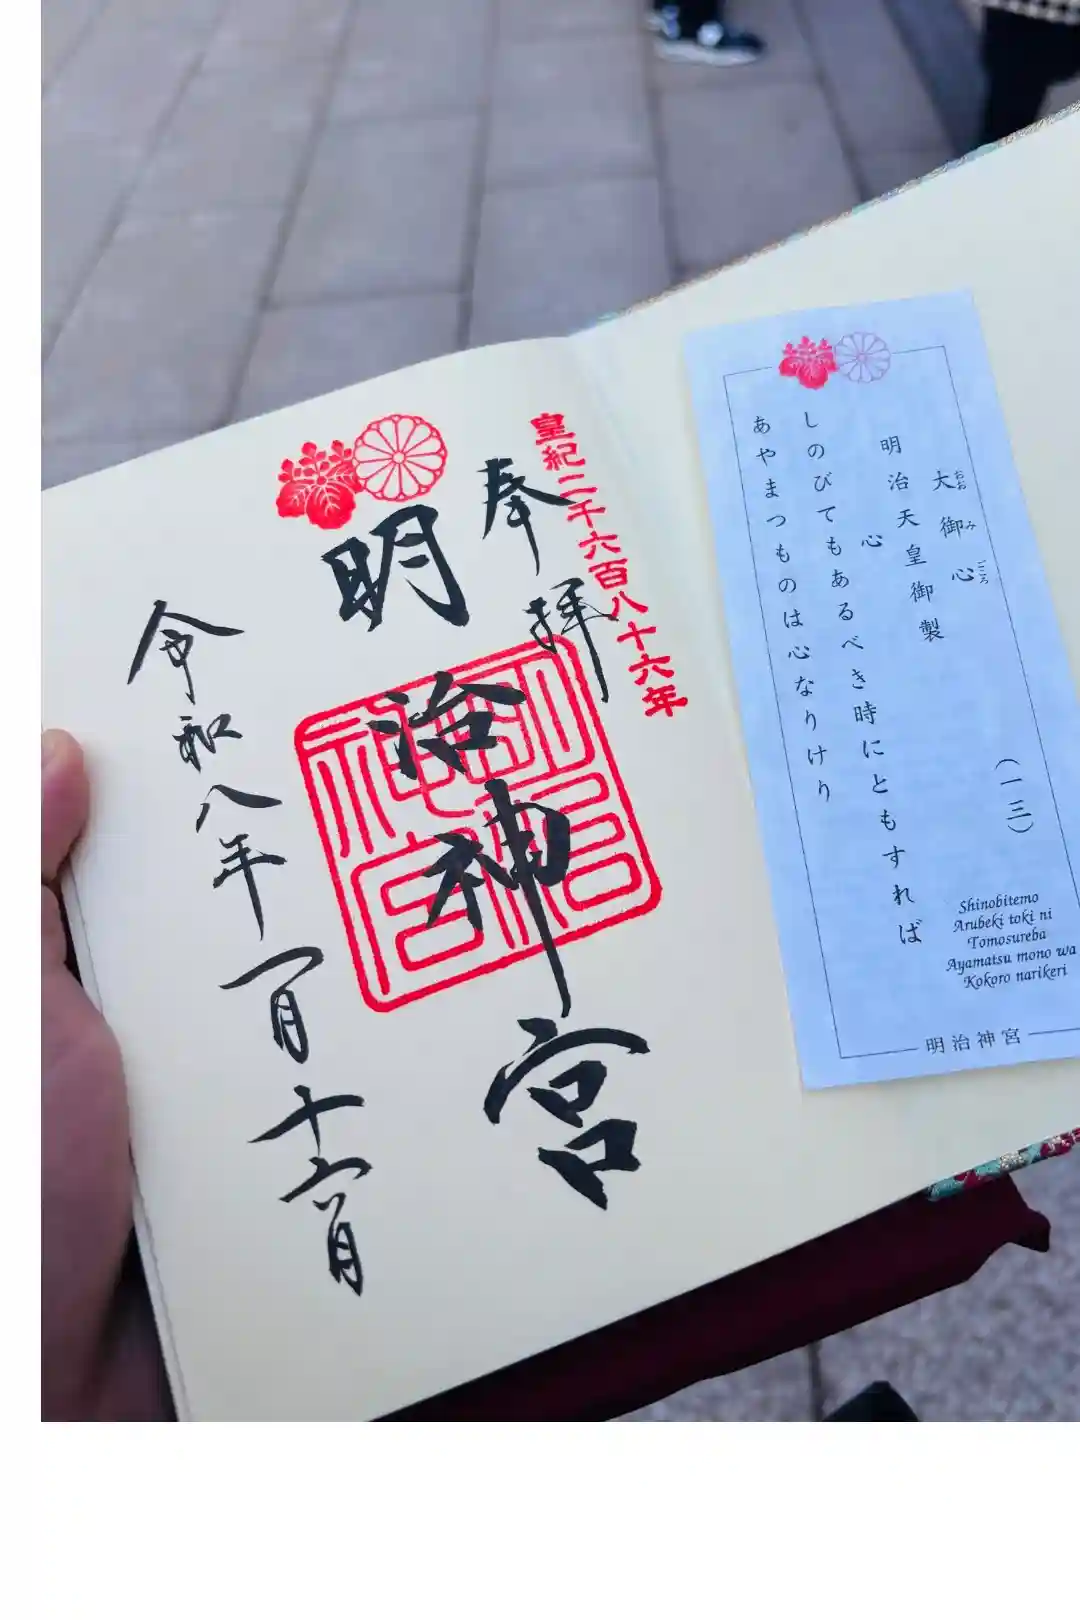 皇紀二千六百八十六年
奉拝
明治神宮
明治
神宮
令和八年一月十六日
大御心 (一三)
おおみごころ
明治天皇御製
心
しのびてもあるべき時にともすれば
あやまつものは心なりけり
Shinobitemo
Arubeki toki ni
Tomosureba
Ayamatsu mono wa
Kokoro narikeri
明治神宮